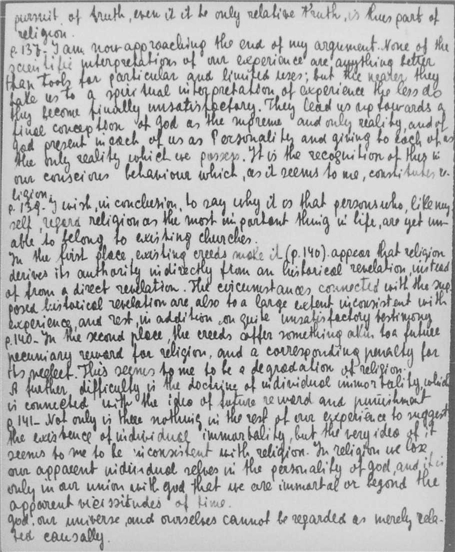 pursuit of truth, even it it be only relative truth, is thus part of
religion.
p.137- I am now approaching the end of my argument. None of the
scientific interpretations of our experience are anything better
than tools for particular and limited uses; but the nearer they
take us to a spiritual interpretation of experience the less do
they become finally unsatisfactory. They lead us up towards a
final conception of God as the supreme and only reality, and of
God present in each of us as Personality and giving to each of us
the only reality which we possess. It is the recognition of this in
our conscious behaviour which, as it seems to me, constitutes re-
ligion.
p.139- I wish, in conclusion, to say why it is that persons who, like my-
self, regard religion as the most important thing in life, are yet un-
able to belong to existing churches.
In the first place, existing creeds make it (p.140) appear that religion
derives its authority indirectly from an historical revelation, instead
of from a direct revelation. The circumstances connected with the sup-
posed historical revelation are, also to a large extent inconsistent with
experience, and rest, in addition, on quite unsatisfactory testimony
p.140- In the second place, the creeds offer something akin to a future
pecuniary reward for religion, and a corresponding penalty for
its neglect. This seems to me to be a degradation of religion.
A further difficulty is the doctrine of individual immortality, which
is connected with the idea of future reward and punishment
p.141- Not only is there nothing in the rest of our experience to suggest
the existence of individual immortality, but the very idea of it
seems to me to be inconsistent with religion. In religion we lose
our apparent individual selves in the personality of God, and it is
only in our union with God that we are immortal or beyond the
apparent vicissitudes of time.
God, our universe, and ourselves cannot be regarded as merely rela-
ted causally.